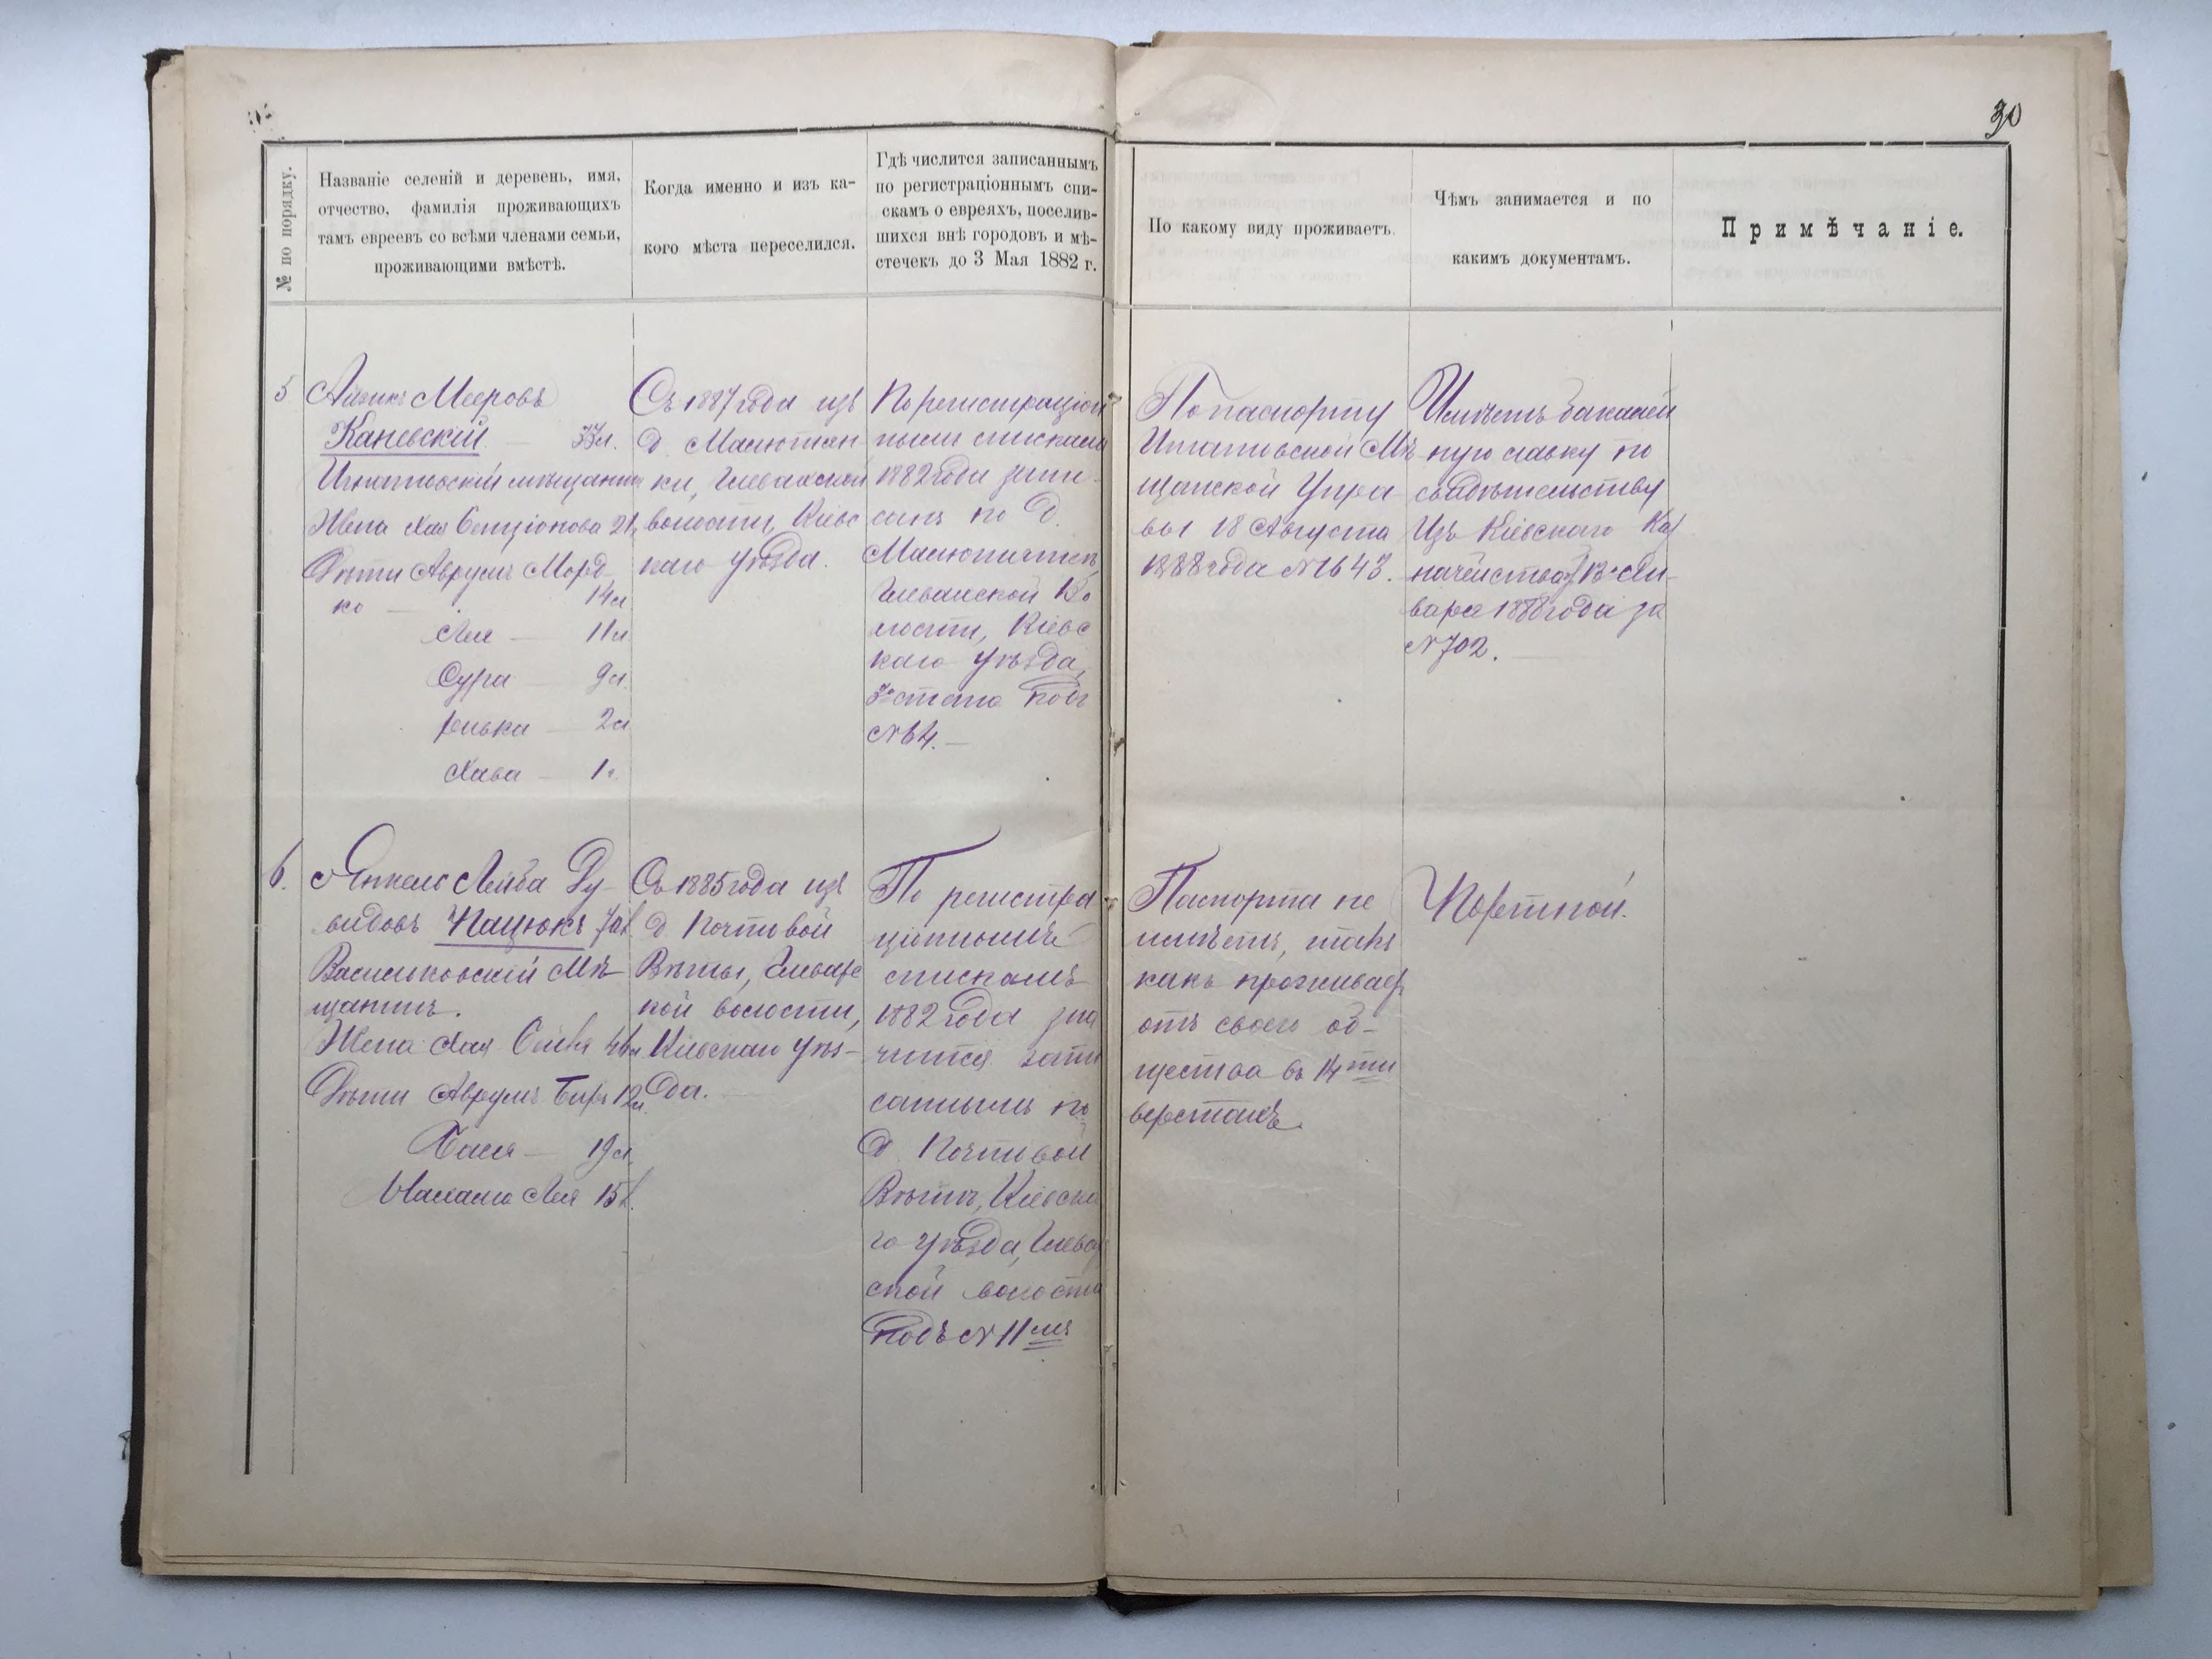 30
№ по порядку.
Названіе селеній и деревень, имя,
отчество, фамилія проживающихъ
тамъ евреевъ со всѣми членами семьи,
проживающими вмѣстѣ.
Когда именно и изъ ка-
кого мѣста переселился.
Гдѣ числится записаннымъ
по регистраціоннымъ спи-
скамъ о евреяхъ, поселив-
шихся внѣ городовъ и мѣ-
стечекъ до 3 Мая 1882 г.
По какому виду проживаетъ.
Чѣмъ занимается и по
какимъ документамъ.
Примѣчаніе.
5
Айзикъ Мееровъ
Каневскій
Игнатовскій мѣщанинъ
Жена Хая Бенціонова 21
Дѣти Аврумъ Морд
ко — 14 л
Лея — 11 л
Сура — 9 л.
2 л
Хава — 1 г.
Съ 1887 года изъ
д. Малютян
ки, Глевахской
волости, Кіевс
каго уѣзда.
По регистраціон
нымъ спискамъ
1882 года запи-
санъ по д.
Малютянкѣ,
Глевахской Во
лости, Кіевс
каго уѣзда,
стана подъ
№ 64.—
По паспорту
Игнатовской Мѣ
щанской Упра
вы 18 Августа
1888 года № 1643.
Имѣетъ бакалей
ную лавку по
свидѣтельству
Изъ Кіевскаго Каз
начейства Ян-
варя 1888 года за
№ 702.
6.
Янкель Лейба Ду
видовъ Пацюкъ
Васильковскій Мѣ
щанинъ.
Жена Хая
Дѣти Аврумъ Беръ 12 л.
Бася — 19 л.
Малка Лея 15 л.
Съ 1885 года изъ
д. Почтовой
Вѣты, Глевахс
кой волости,
Кіевскаго уѣз-
да.
По регистра
ціоннымъ
спискамъ
1882 года зна
чится запи
саннымъ по
д. Почтовой
Вѣтѣ, Кіевска
го уѣзда, Глевах
ской волости
подъ № 11 мъ
Паспорта не
имѣетъ, такъ
какъ проживаетъ
отъ своего об-
щества въ 14 ти
верстахъ.
Портной.